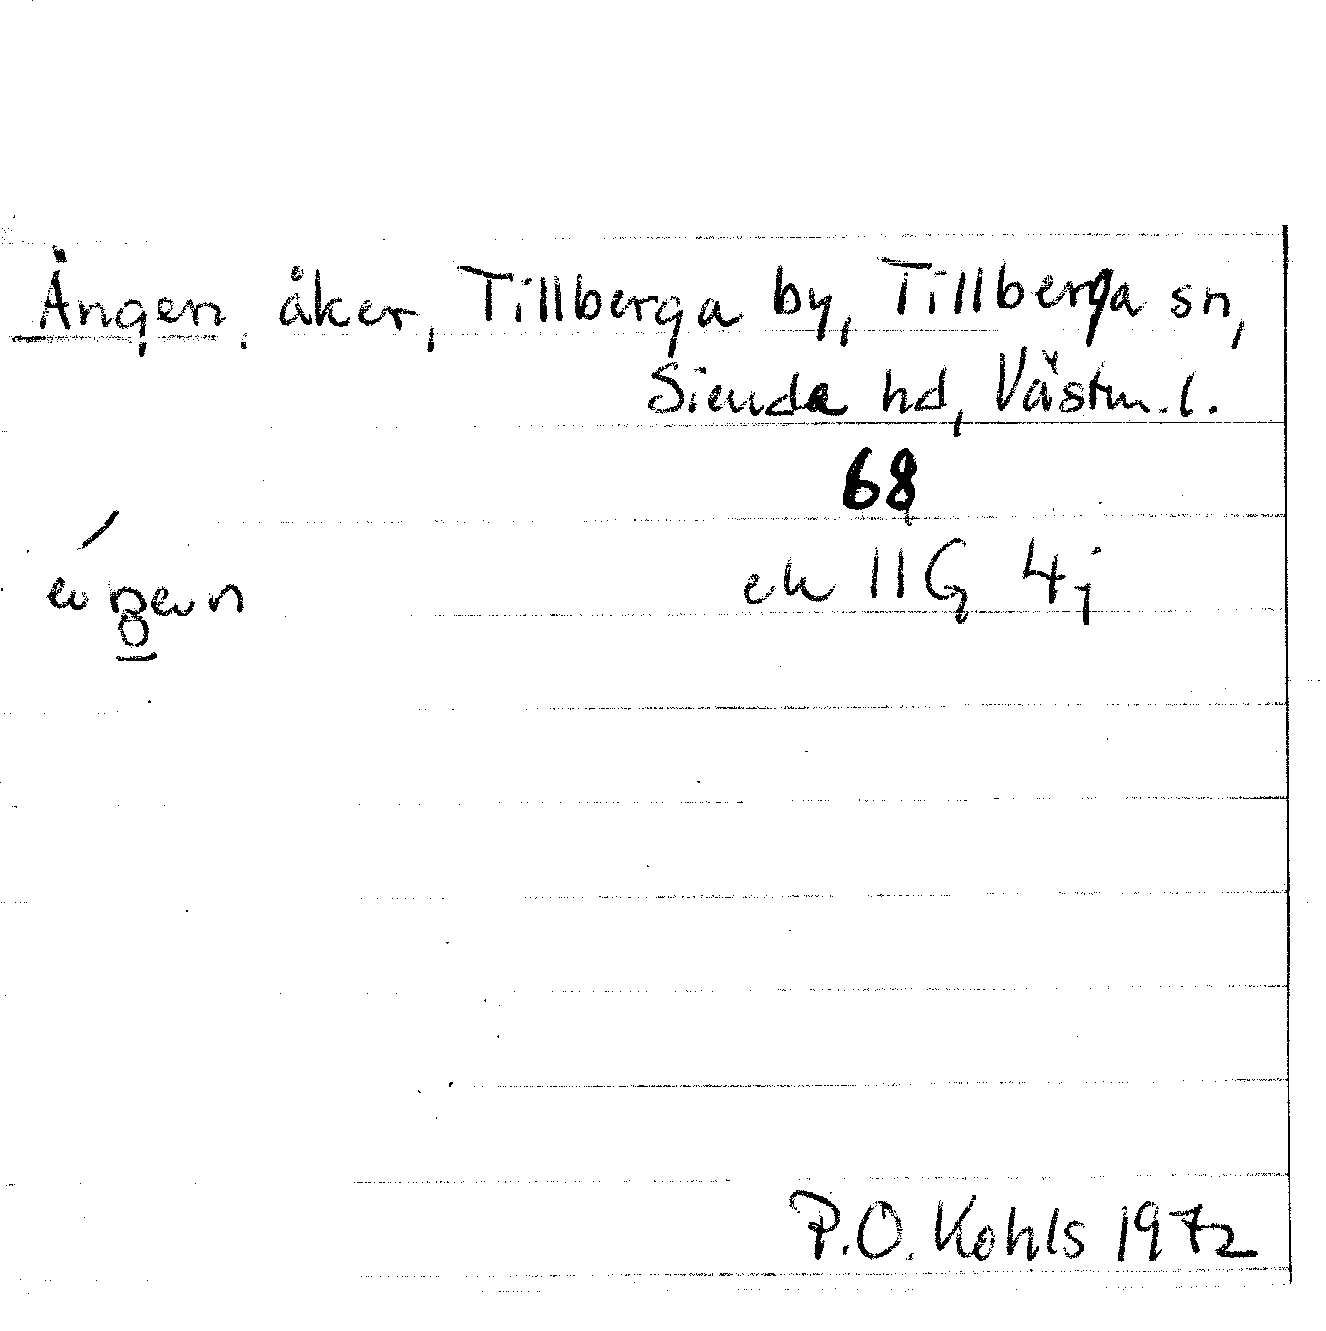 Ängen, åker, Tillberga by, Tillberga sn,
Siende hd, Västm. l.
68
ek 11G 4j
P.O. Kohls 1972